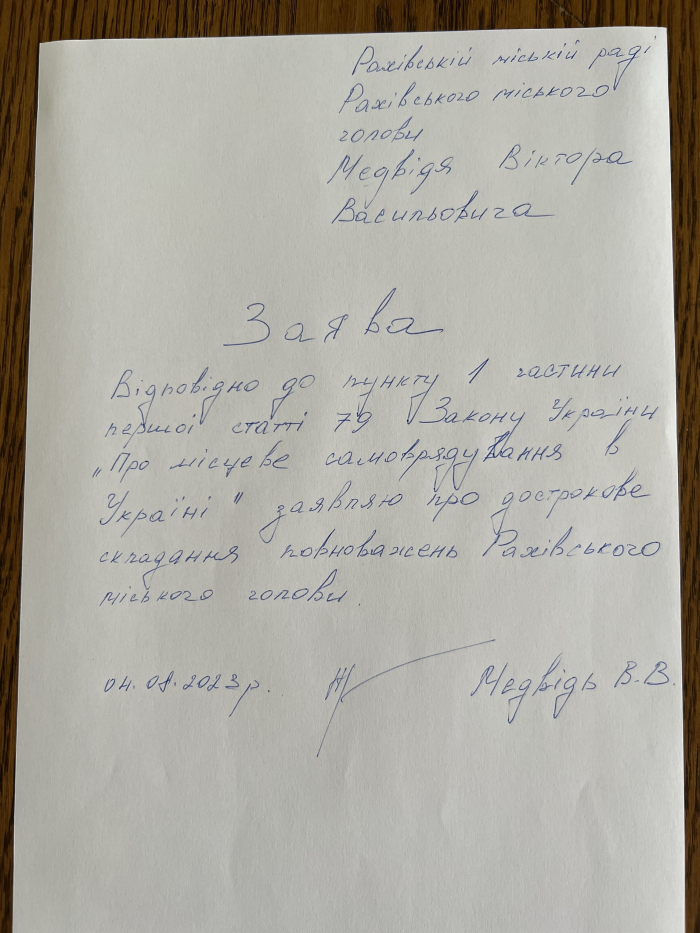 Рахівській міській раді
Рахівського міського
голови
Медвідя Віктора
Васильовича
Заява
Відповідно до пункту 1 частини
першої статті 79 Закону України
„Про місцеве самоврядування в
Україні" заявляю про дострокове
складання повноважень Рахівського
міського голови.
04.08.2023р. Медвідь В.В.